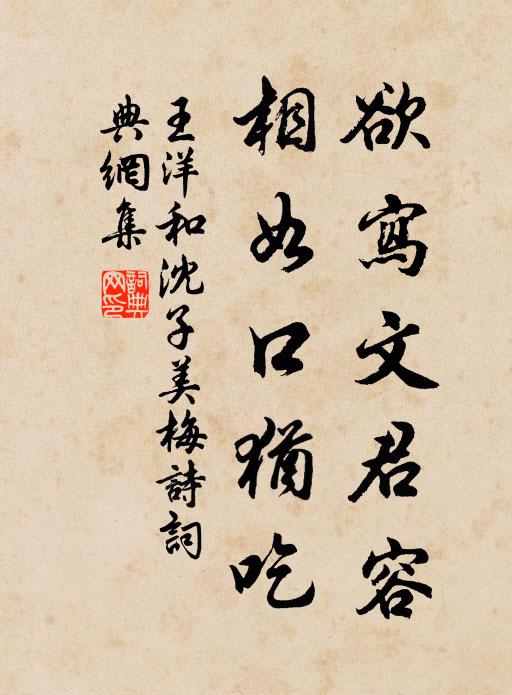 欲寫文君容
相如口猶吃
王洋和沈子美梅詩詞
典網集
詞典
网印